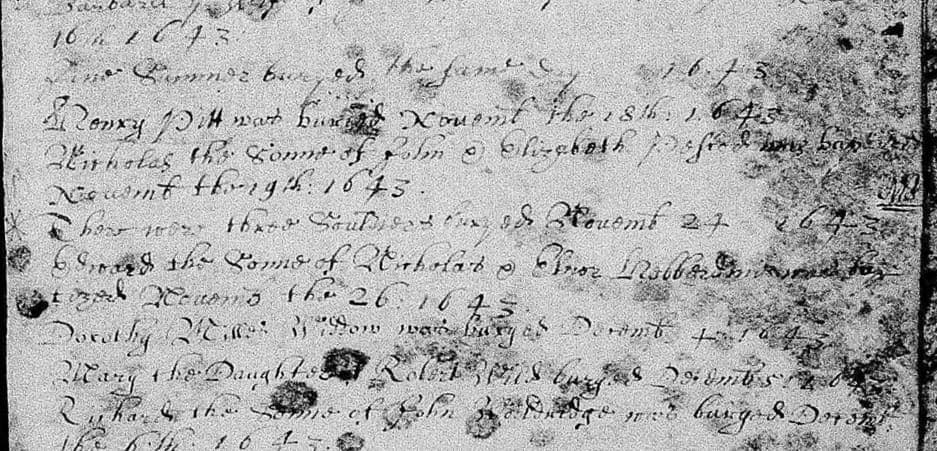 16th 1643
Sumner buryed the same day 1643
Henry Pitt was buryed Novemb the 18th: 1643
Nicholas the Sonne of John & Elizabeth was baptized
Novemb the 19th: 1643.
There were three Souldiers buryed Novemb 24 1643
Edward the Sonne of Nicholas & Elnor was bap
tized Novemb the 26: 1643
Dorothy Miller Widdow was buryed Decemb. 4. 1643
Mary the Daughter of Robert Wild buryed Decemb 5
Richard the Sonne of John was buryed Decemb.
the 6th: 1643.